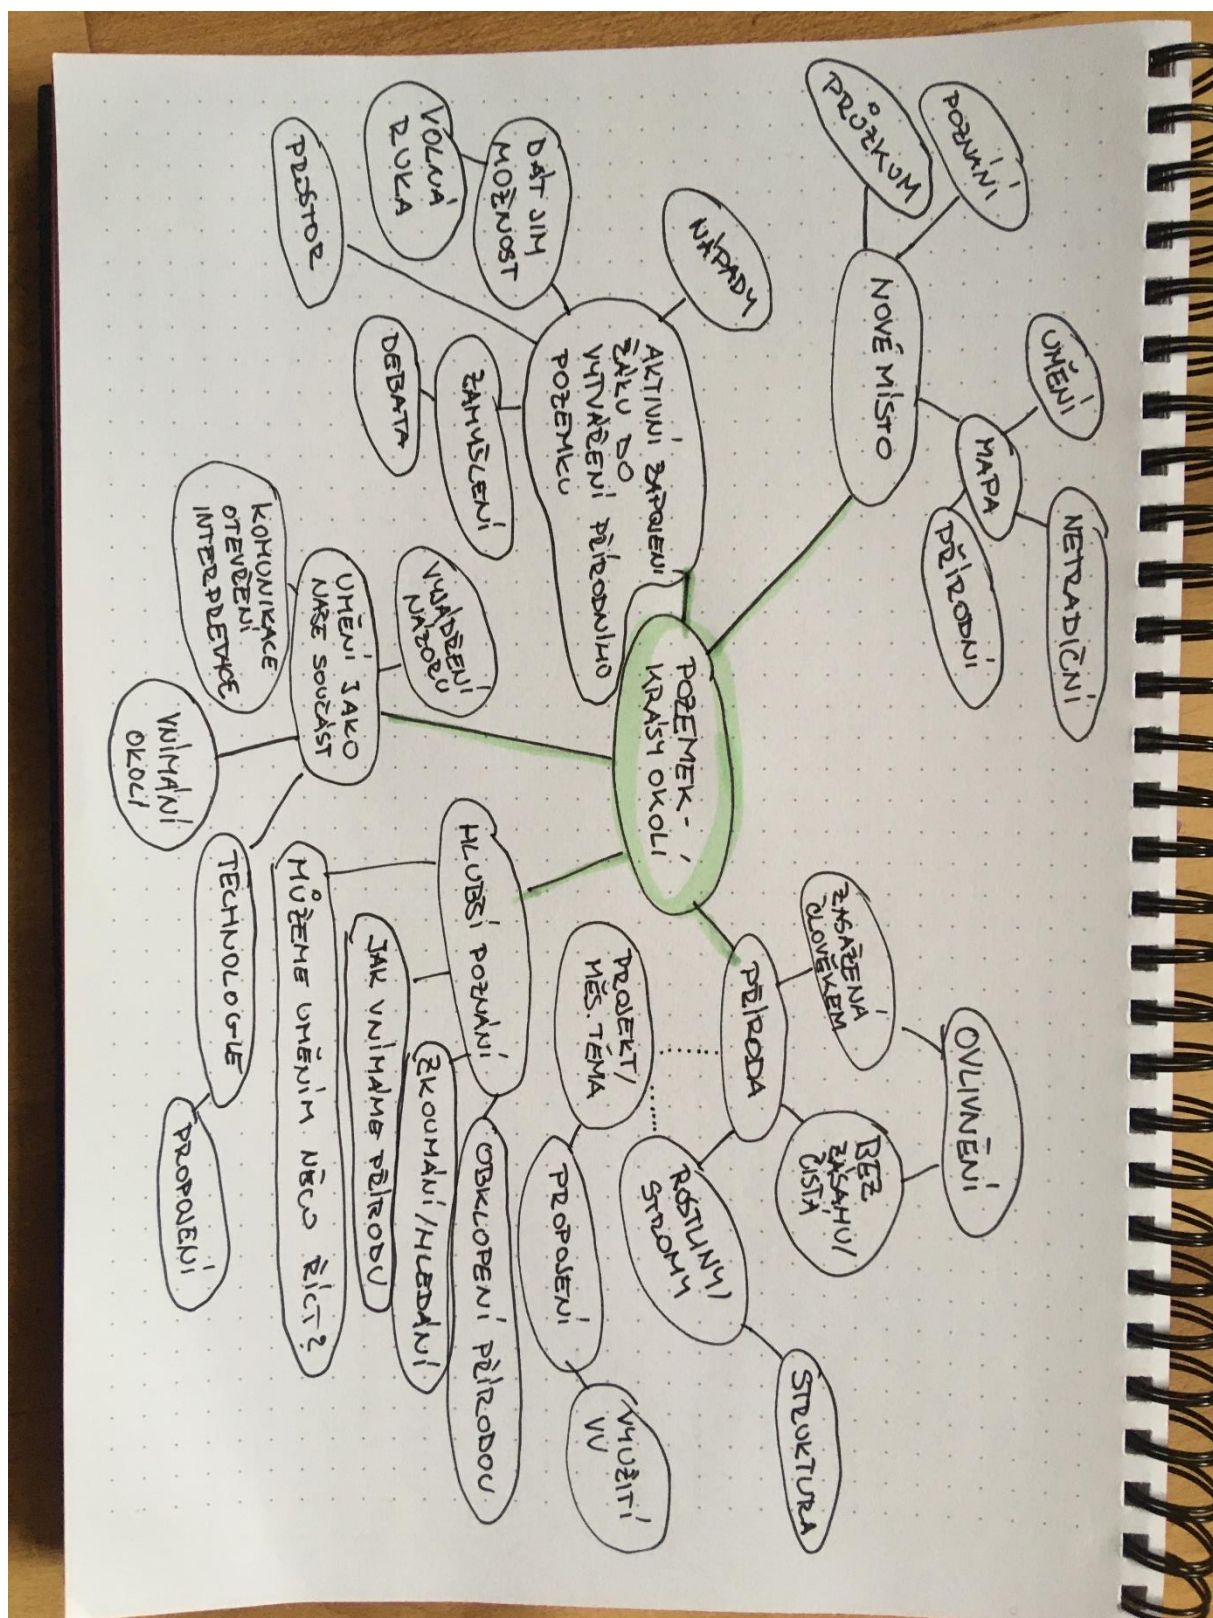 POZNÁNÍ
PRŮZKUM
NOVÉ MÍSTO
UMĚNÍ
MAPA
NETRADIČNÍ
PŘÍRODNÍ
NÁPADY
AKTIVNÍ ZAPOJENÍ
ŽÁKU DO
VYTVÁŘENÍ PŘÍRODNÍHO
POZEMKU
DÁT JIM
MOŽNOST
VOLNÁ
RUKA
PROSTOR
ZAMYŠLENÍ
DEBATA
POZEMEK -
KRÁSY OKOLÍ
VYJÁDŘENÍ
NÁZORU
UMĚNÍ JAKO
NAŠE SOUČÁST
KOMUNIKACE
OTEVŘENÍ
INTERPRETACE
VNÍMÁNÍ
OKOLÍ
TECHNOLOGIE
PROPOJENÍ
HLUBŠÍ POZNÁNÍ
MŮŽEME UMĚNÍM NĚCO ŘÍCT?
JAK VNÍMÁME PŘÍRODU
ZKOUMÁNÍ/HLEDÁNÍ
OBKLOPENÍ PŘÍRODOU
PŘÍRODA
ZASAŽENÁ
ČLOVĚKEM
OVLIVNĚNÍ
BEZ
ZÁSAHU/
ČISTÁ
ROSTLINY/
STROMY
STRUKTURA
PROJEKT/
MĚS. TÉMA
PROPOJENÍ
VYUŽITÍ
VV